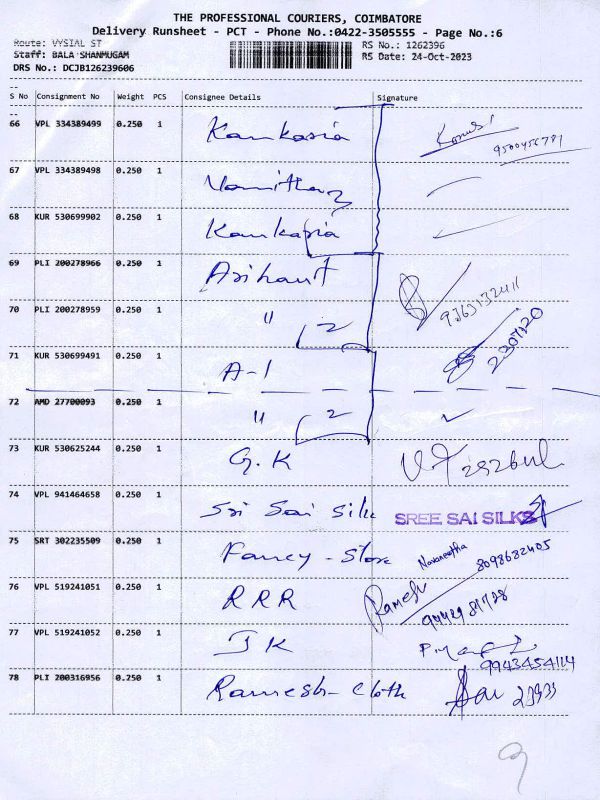 THE PROFESSIONAL COURIERS, COIMBATORE
Delivery Runsheet - PCT - Phone No.:0422-3505555 - Page No.:6
Route: VYSIAL ST RS No.: 1262396
Staff: BALA SHANMUGAM RS Date: 24-Oct-2023
DRS No.: DCJB126239606
--
S No Consignment No Weight PCS Consignee Details Signature
--
66 VPL 334389499 0.250 1 Kankaria
9500456781
67 VPL 334389498 0.250 1 Namitha
68 KUR 530699902 0.250 1 Kankaria
69 PLI 200278966 0.250 1 Arihant
70 PLI 200278959 0.250 1 " 2
71 KUR 530699491 0.250 1 A-1
72 AMD 27700093 0.250 1 " 2
73 KUR 530625244 0.250 1 G.K
74 VPL 941464658 0.250 1 Sri Sai Silk SREE SAI SILKS
75 SRT 302235509 0.250 1 Fancy - Store Navaneetha 8098632405
76 VPL 519241051 0.250 1 RRR Ramesh
77 VPL 519241052 0.250 1 JK
9943454114
78 PLI 200316956 0.250 1 Ramesh - cloth